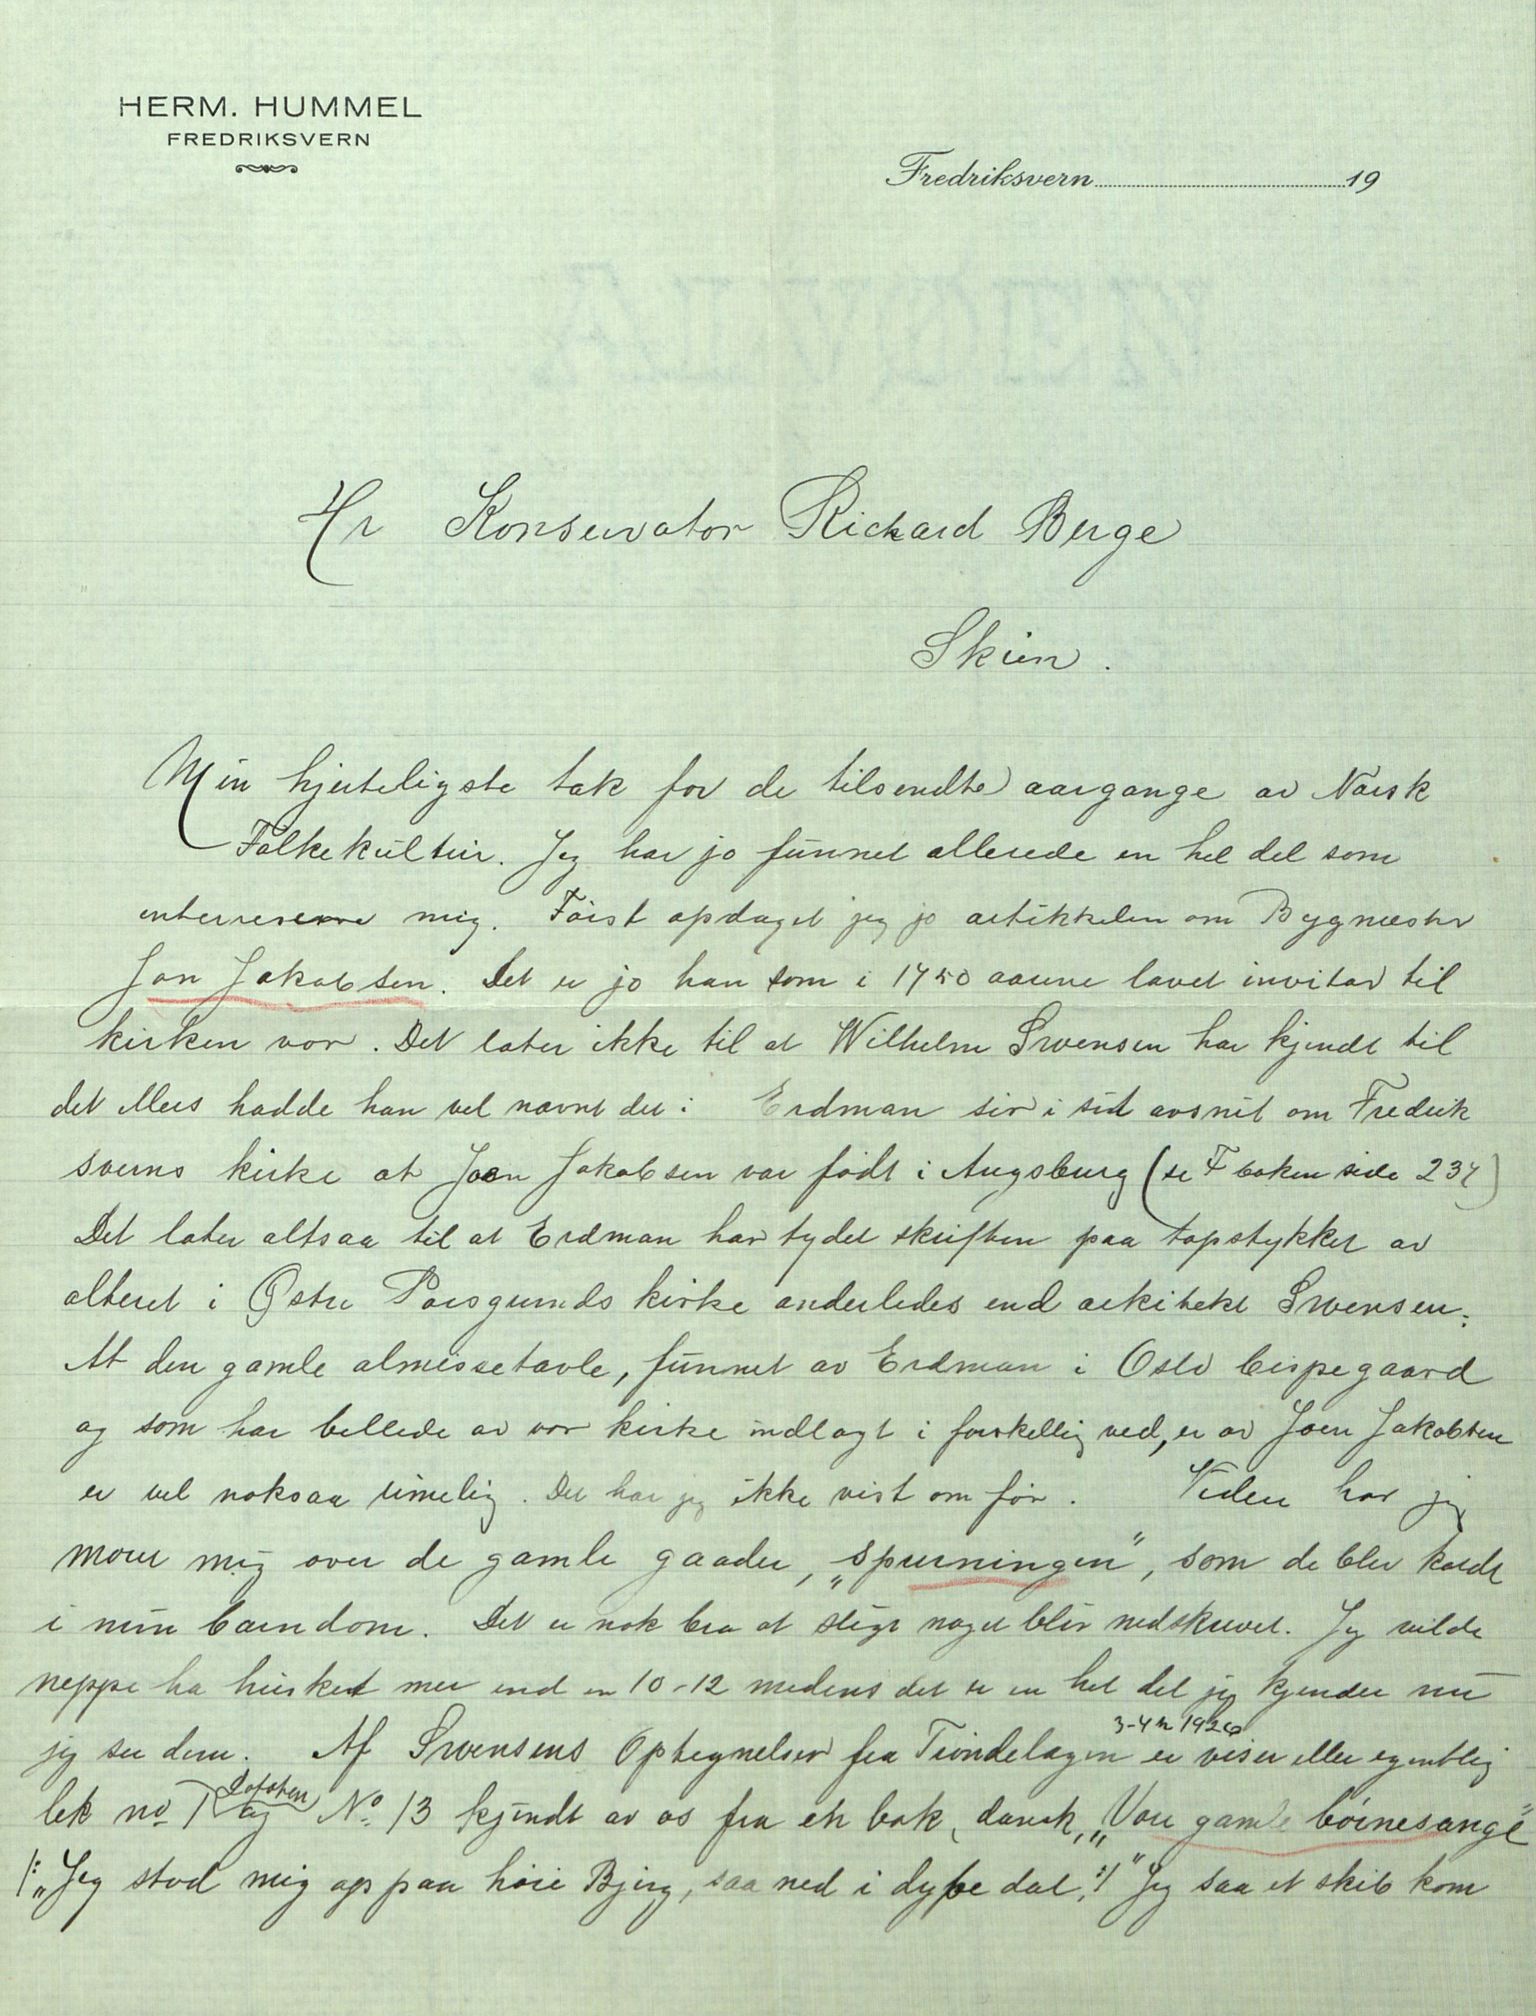 HERM. HUMMEL
FREDRIKSVERN
Fredriksvern 19
Hr Konservator Rickard Berge
Skien.
Min hjerteligste tak for de tilsendte aargange av Norsk
Folkekultur. Jeg har jo funnet allerede en hel del som
interreserer mig. Först opdaget jeg jo artikkelen om Bygmester
Jon Jakobsen. Det er jo han som i 1750 aarene lavet inventar til
kirken vor. Det later ikke til at Wilhelm Swensen har kjendt til
det ellers hadde han vel nævnt det: Erdman sir i sit avsnit om Fredrik
sverns kirke at Joen Jakobsen var født i Augsburg (se F boken side 234)
Det later altsaa til at Erdman har tydet skriften paa topstykket av
alteret i Østre Porsgrunds kirke anderledes end arkitekt Swensen.
At den gamle almissetavle, funnet av Erdman i Oslo bispegaard
og som har billede av vor kirke indlagt i forskellig ved, er av Joen Jakobsen
er vel noksaa rimelig. Det har jeg ikke vist om før. Videre har jeg
moret mig over de gamle gaader, "spurningen", som de blev kaldt
i min barndom. Det er nok bra at sligt noget blir nedskrevet. Jeg vilde
neppe ha husket mer end en 10-12 medens det er en hel del jeg kjender nu
jeg ser dem. Af Swensens Optegnelser fra Trøndelagen 3-4 h 1926 er viser eller egentlig
lek no 1 og No 13 kjendt av os fra en bok, dansk, "Vore gamle börnesange"
/: "Jeg stod mig op paa höie Bjerg, saa ned i dybe dal, :/" Jeg saa et skib kom